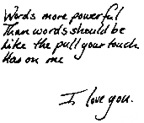 Words more powerful
Than words should be
Like the pull your touch
Has on me
I love you.